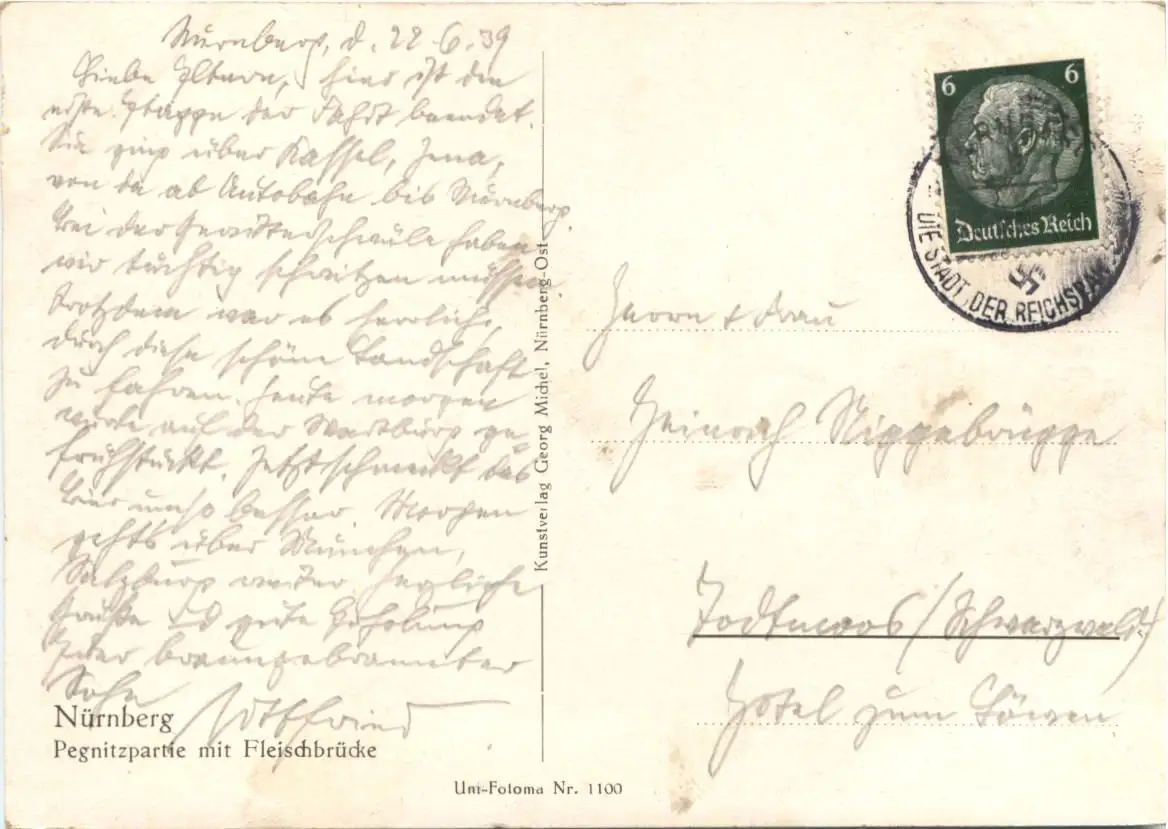 Nürnberg, d. 22.6.39
Liebe Eltern, hier ist die
erste Etappe der Fahrt beendet.
Sie ging über Kassel, Jena,
von da ab Autobahn bis Nürnberg.
Bei der Gewitterschwüle haben
wir tüchtig schwitzen müssen
trotzdem war es herrlich,
durch diese schöne Landschaft
zu fahren. Heute morgen
wurde auf der Wartburg ge-
frühstückt. Jetzt schmeckt das
Bier umso besser. Morgen
gehts über München,
Salzburg weiter. Herzliche
Grüße & gute Erholung
Euer braungebrannter
Sohn Gottfried
Nürnberg
Pegnitzpartie mit Fleischbrücke
Uni-Fotoma Nr. 1100
Kunstverlag Georg Michel, Nürnberg-Ost
6 6
Deutsches Reich
DIE STADT DER REICHSPA
Herrn & Frau
Heinrich Niggebrügge
Todtmoos (Schwarzwald)
Hotel zum Löwen